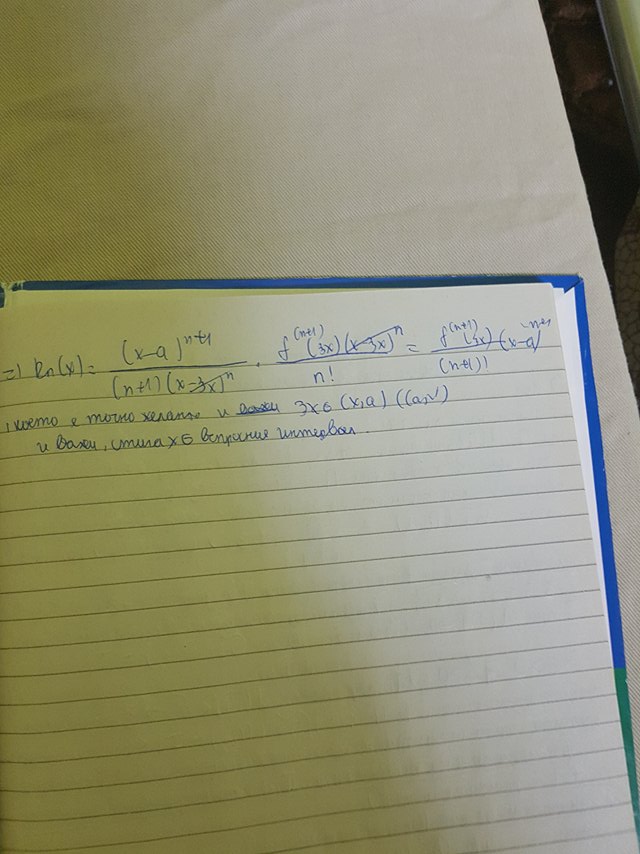 => Rn(x) = (x-a)^{n+1} / ((n+1)(x-3x)^n) · f^{(n+1)}(3x)(x-3x)^n / n! = f^{(n+1)}(3x)(x-a)^{n+1} / (n+1)!
, което е точно желано и важи 3x∈(x,a) ((a,x)
и важи, стига x∈ интервал.